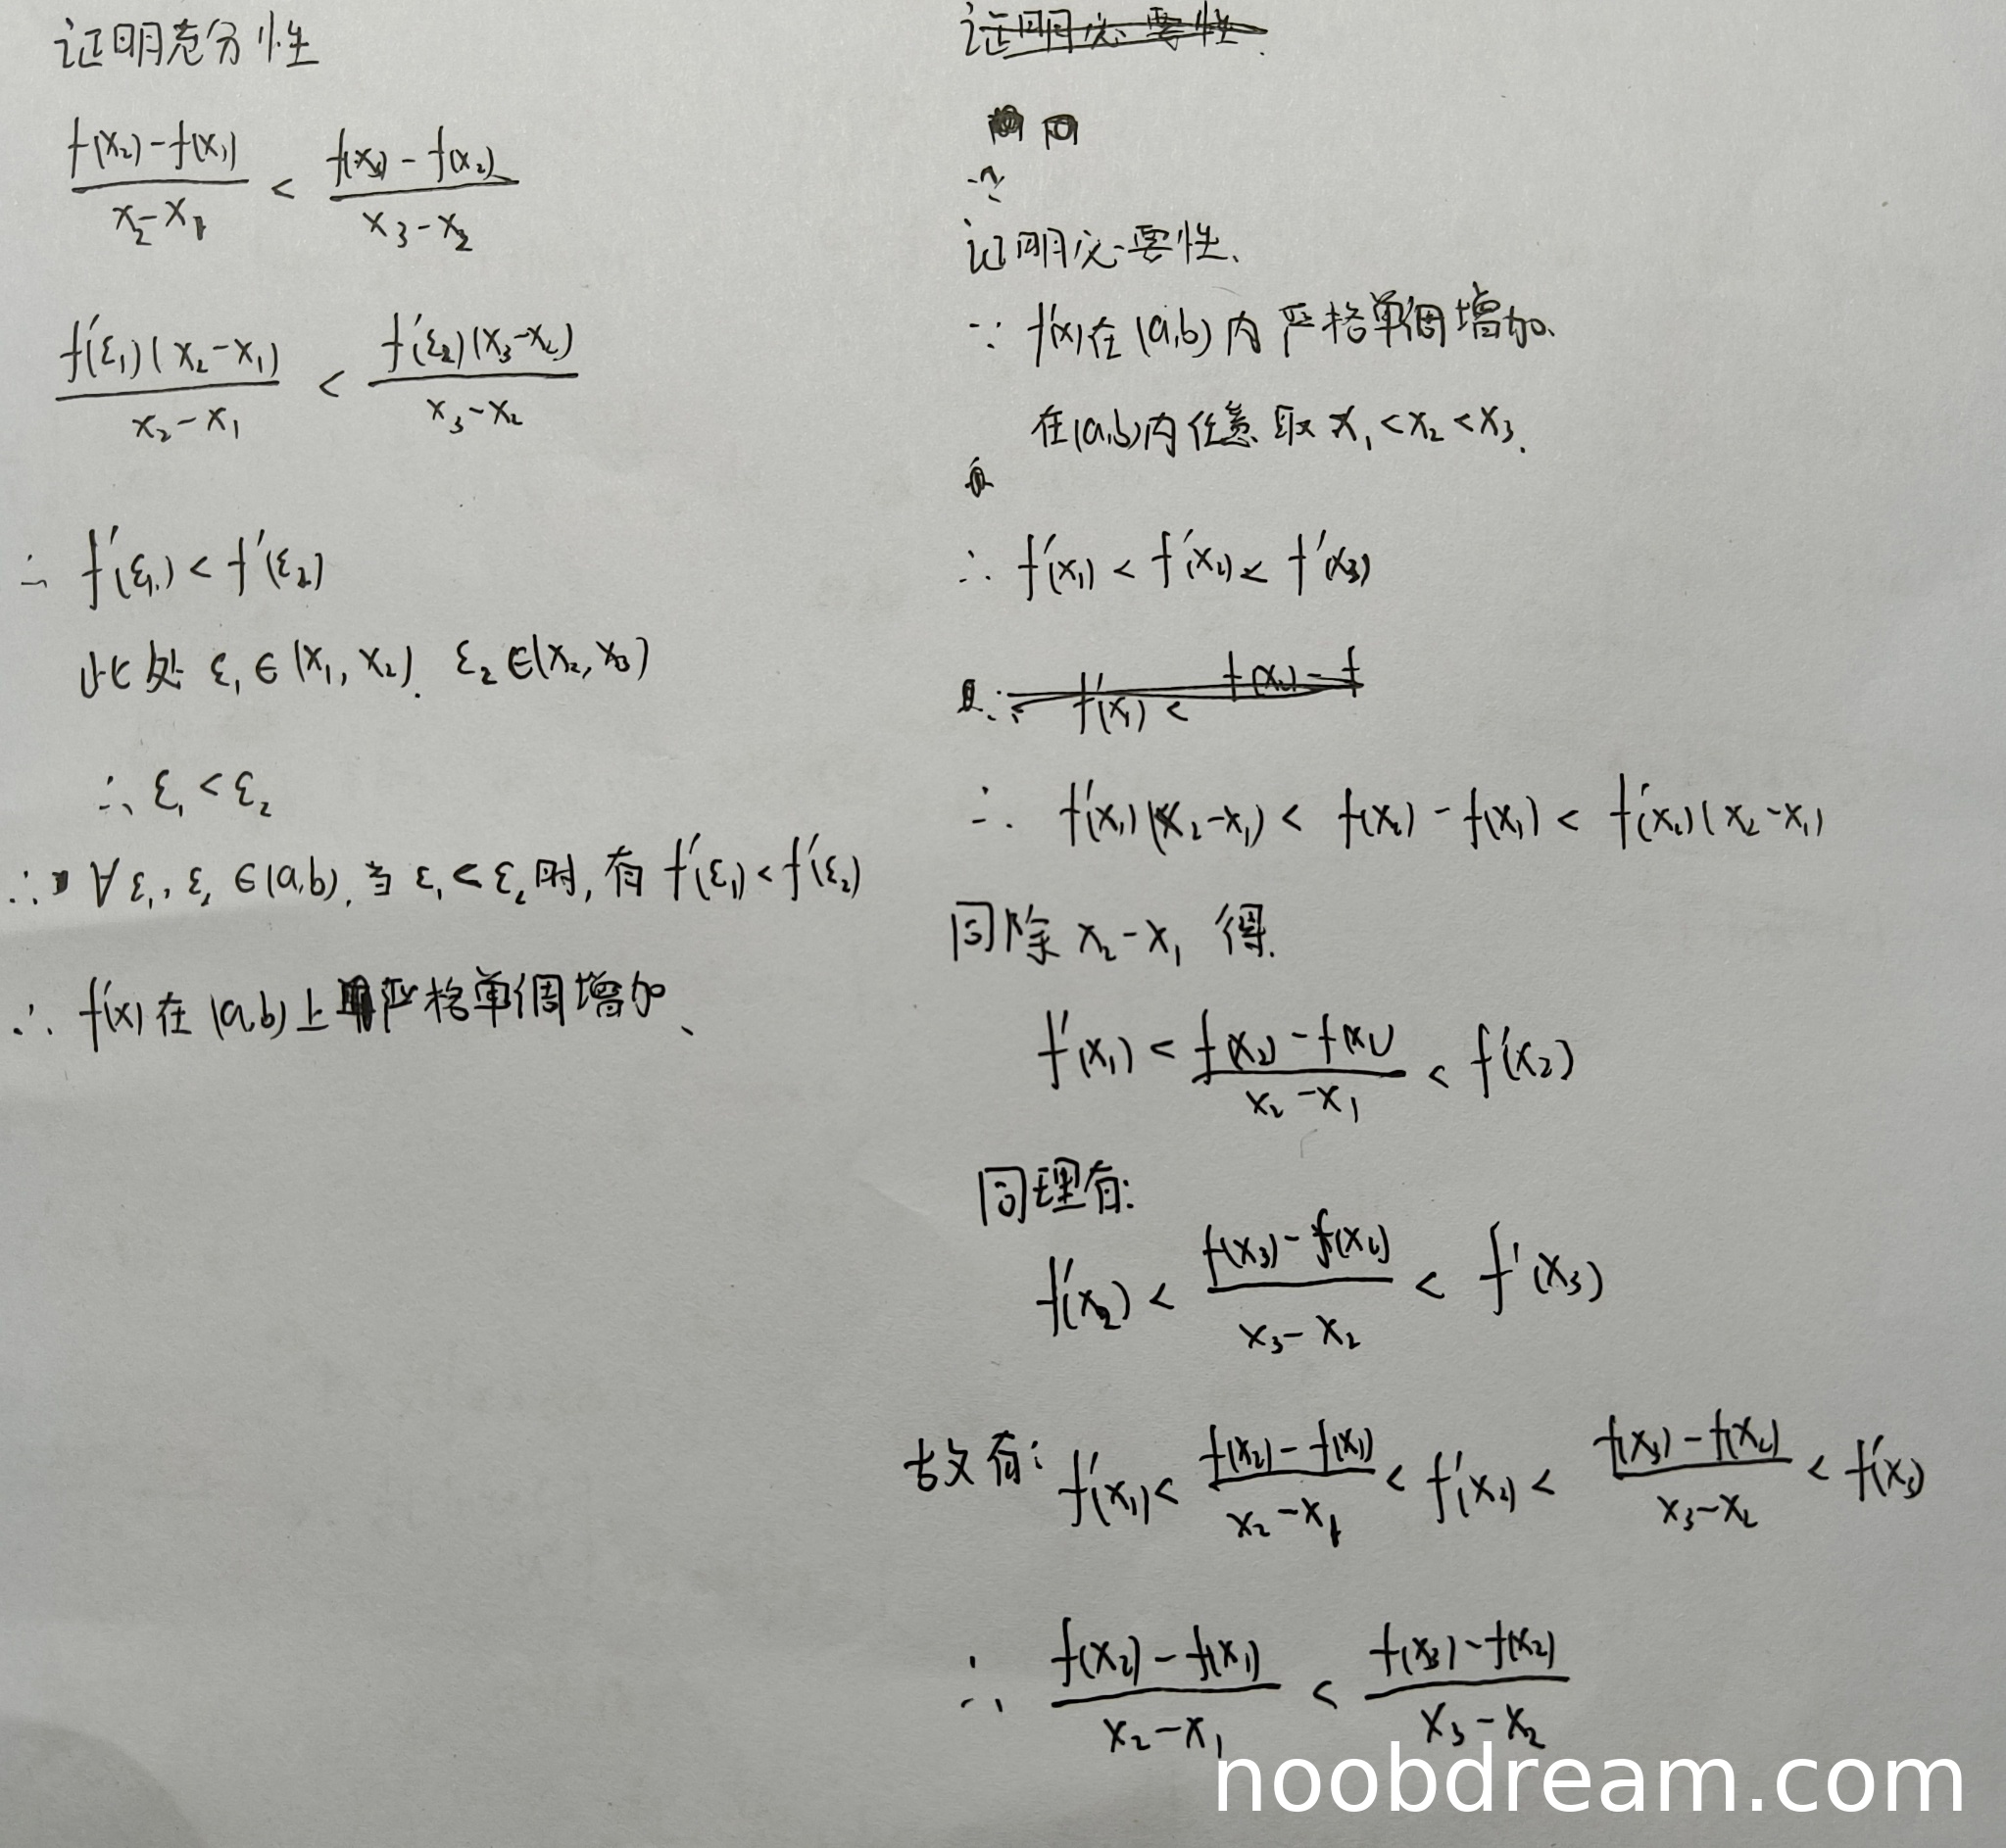 证明充分性
f(x₂)-f(x₁) / x₂-x₁ < f(x₃)-f(x₂) / x₃-x₂
f'(ε₁)(x₂-x₁) / x₂-x₁ < f'(ε₂)(x₃-x₂) / x₃-x₂
∴ f'(ε₁) < f'(ε₂)
此处 ε₁∈(x₁, x₂). ε₂∈(x₂, x₃)
∴ ε₁ < ε₂
∴ ∀ε₁, ε₂∈(a,b), 当 ε₁<ε₂时, 有 f'(ε₁)<f'(ε₂)
∴ f'(x)在(a,b)上严格单调增加、
证明必要性.
证明必要性、
∵ f'(x)在(a,b)内严格单调增加、
在(a,b)内任意取 x₁<x₂<x₃.
∴ f'(x₁) < f'(x₂) < f'(x₃)
f'(x₁) < f(x₂)-f
∴ f'(x₁)(x₂-x₁) < f(x₂)-f(x₁) < f'(x₂)(x₂-x₁)
同除 x₂-x₁ 得.
f'(x₁) < f(x₂)-f(x₁) / x₂-x₁ < f'(x₂)
同理有:
f'(x₂) < f(x₃)-f(x₂) / x₃-x₂ < f'(x₃)
故有: f'(x₁) < f(x₂)-f(x₁) / x₂-x₁ < f'(x₂) < f(x₃)-f(x₂) / x₃-x₂ < f'(x₃)
∴ f(x₂)-f(x₁) / x₂-x₁ < f(x₃)-f(x₂) / x₃-x₂
noobdream.com